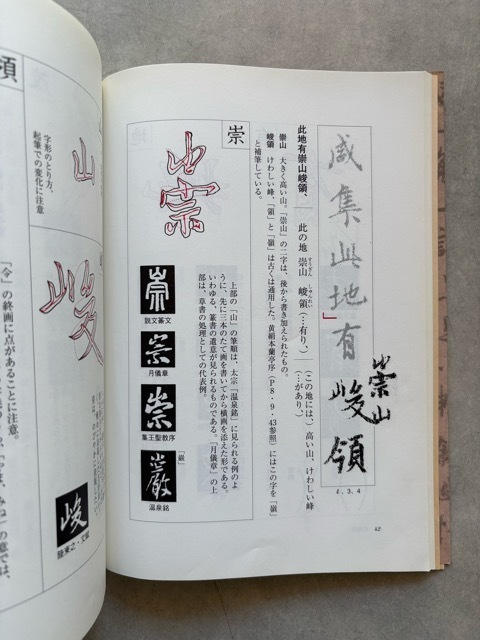 咸集此地有
崇山
峻領
ℓ. 3. 4
此地有崇山峻領、
此の地 崇山 峻領(…有り、)
すうざん しゅんれい
(この地には、)高い山、けわしい峰
(…があり、)
崇山 大きく高い山。「崇山」の二字は、後から書き加えられたもの。
峻領 けわしい峰、「領」と「嶺」は古くは通用した。黄絹本蘭亭序(P8・9・43参照)にはこの字を「嶺」
と補筆している。
崇
崇
上部の「山」の筆順は、太宗「温泉銘」に見られる例のよ
うに、先に三本のたて画を書いてから横画を添えた形である。
いわゆる、篆書の遺意が見られるものである。「月儀章」の上
部は、草書の処理としての代表例。
崇
説文篆文
崇
月儀章
崇
集王聖教序
「巌」
巌
温泉銘
42
領
山
字形のとり方、
起筆での変化に注意
峻
峻
陸柬之・文賦
「令」の終画に点があることに注意。